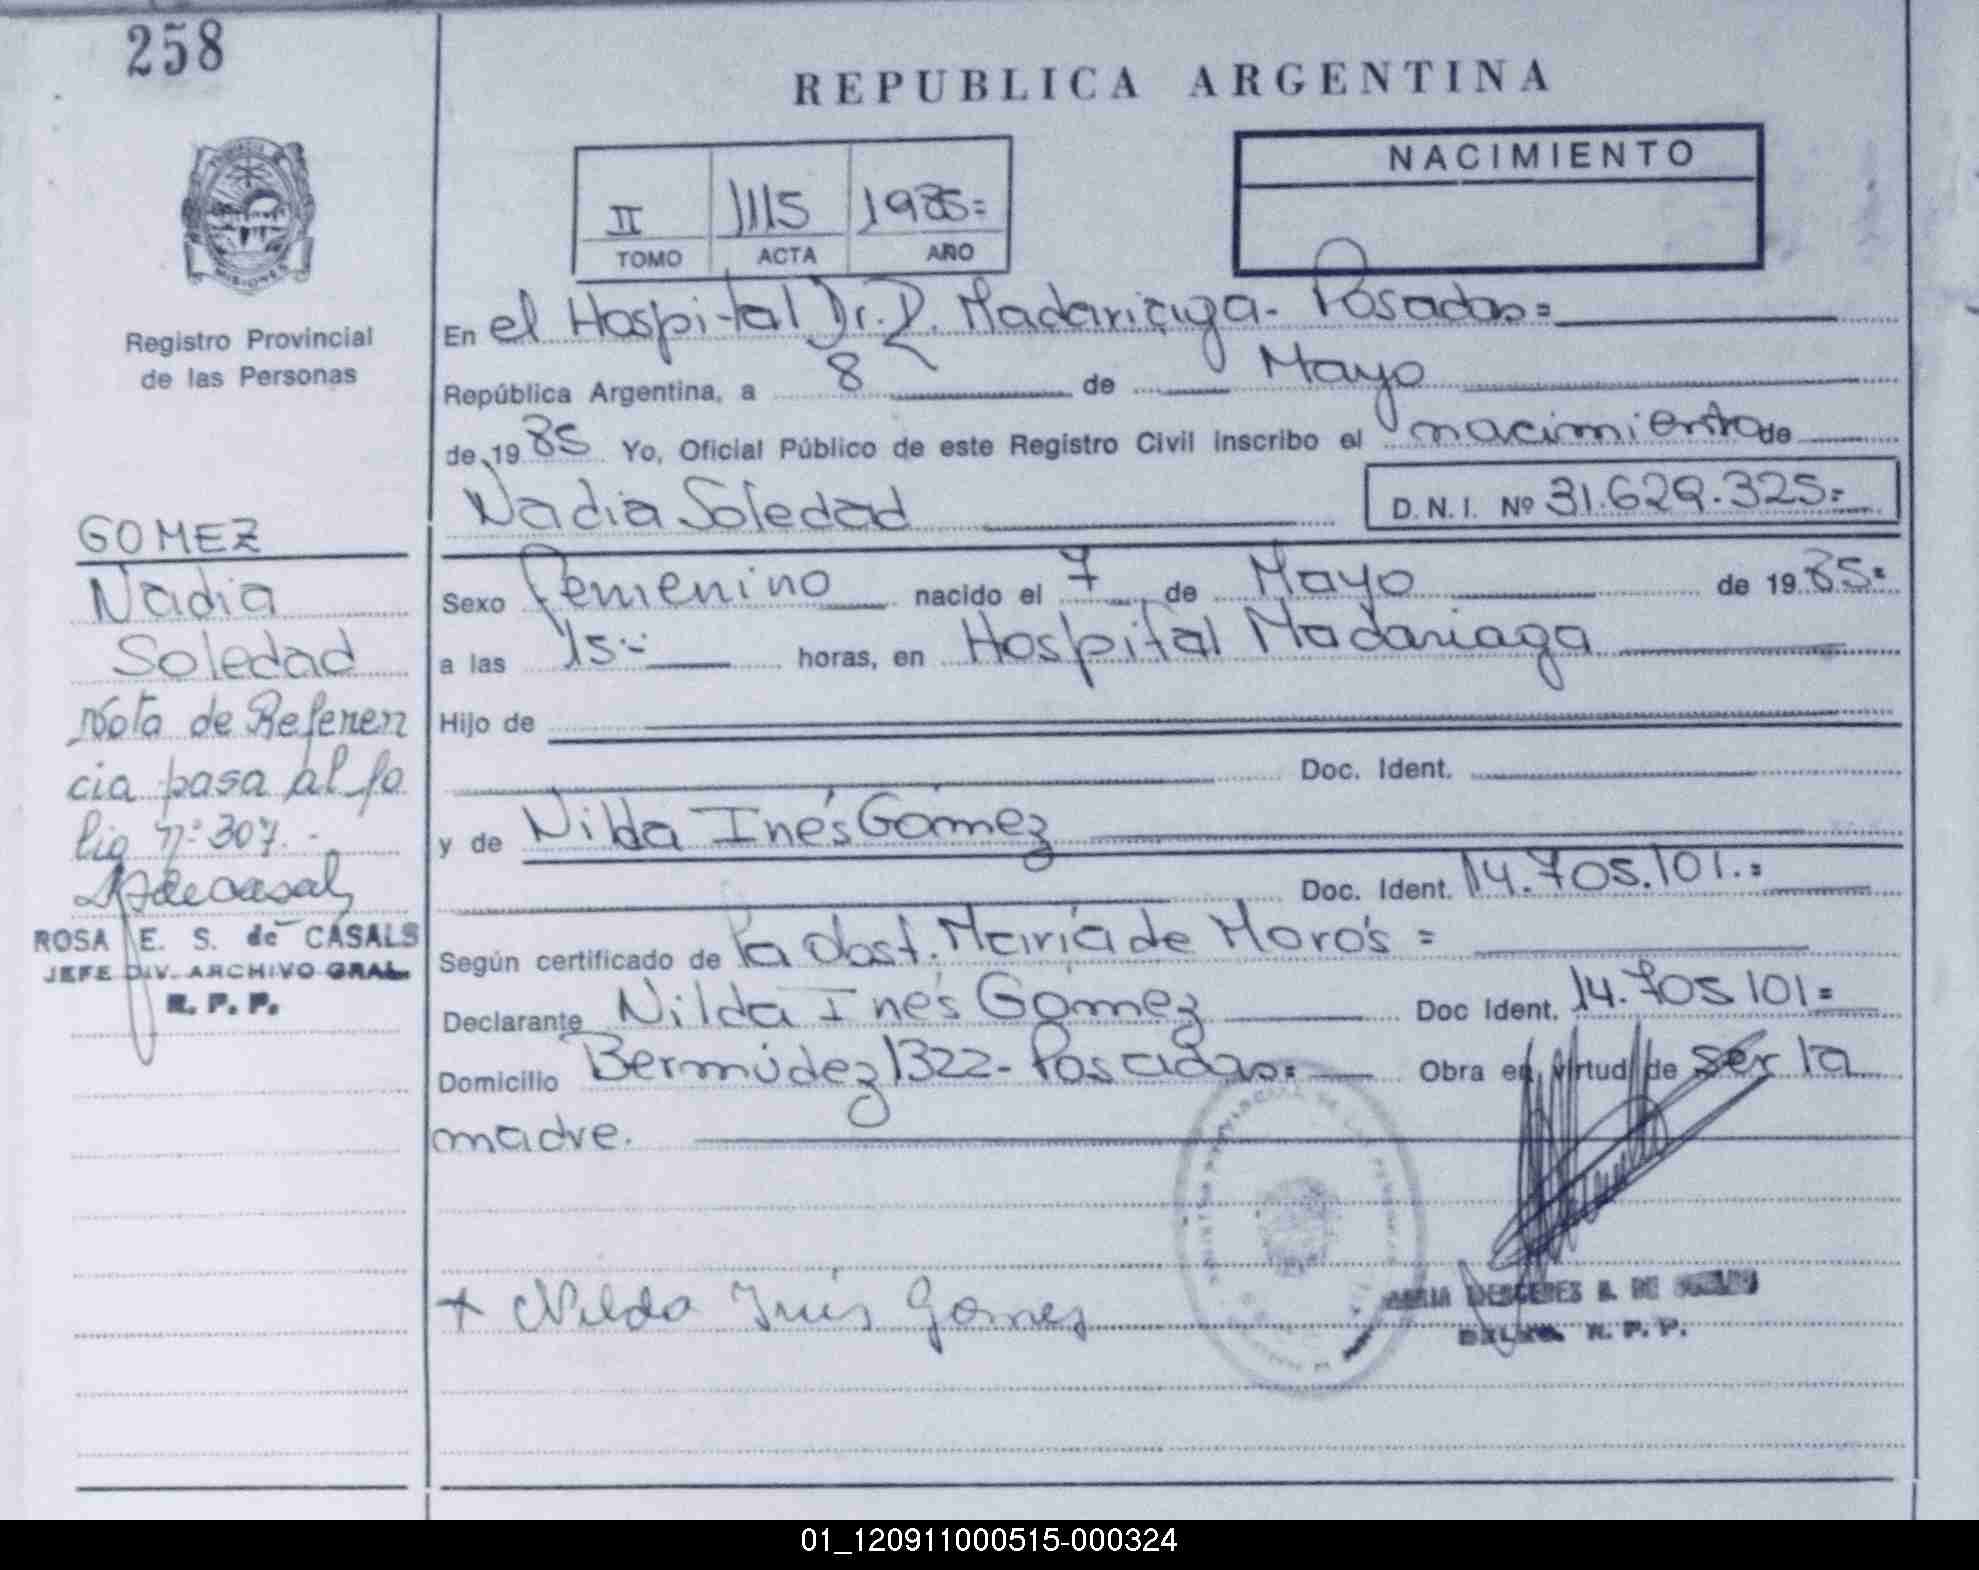 258
REPUBLICA ARGENTINA
NACIMIENTO
II 1115 1985=
TOMO ACTA AÑO
MISIONES
Registro Provincial
de las Personas
En el Hospital Dr. R. Madariaga - Posadas =
República Argentina, a 8 de Mayo
de 19 85 Yo, Oficial Público de este Registro Civil inscribo el nacimiento de
Nadia Soledad D.N.I. Nº 31.629.325=
GOMEZ
Nadia
Soledad
Nota de Referen
cia pasa al fo
lio nº 307.-
ROSA E. S. de CASALS
JEFE DIV. ARCHIVO GRAL.
R. P. P.
Sexo femenino nacido el 7 de Mayo de 19 85=
a las 15 horas, en Hospital Madariaga
Hijo de
Doc. Ident.
y de Nilda Inés Gómez
Doc. Ident. 14.705.101.=
Según certificado de la obst. María de Morós =
Declarante Nilda Inés Gómez Doc Ident. 14.705 101=
Domicilio Bermúdez 1322 - Posadas= Obra en virtud de ser la
madre.
+ Nilda Inés Gomes
MARIA MERCEDES B. DE
R. P. P.
01_120911000515-000324